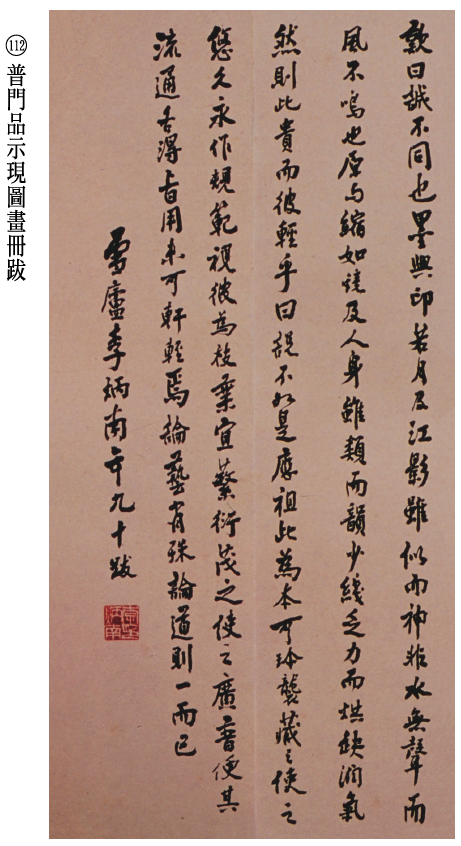 ⑫ 普門品示現圖畫冊跋
歟曰誠不同也墨與印若月及江影雖似而神非水無聲而
風不鳴也原与縮如鏡及人身雖類而韻少綫乏力而烘缺潤氣
然則此貴而彼輕乎曰說不如是應祖此為本可珍襲藏之使之
悠久永作規範視彼為枝葉宜蘩衍茂之使之廣普便其
流通各得旨用未可軒輊焉論藝有殊論道則一而已
雪廬李炳南年九十跋